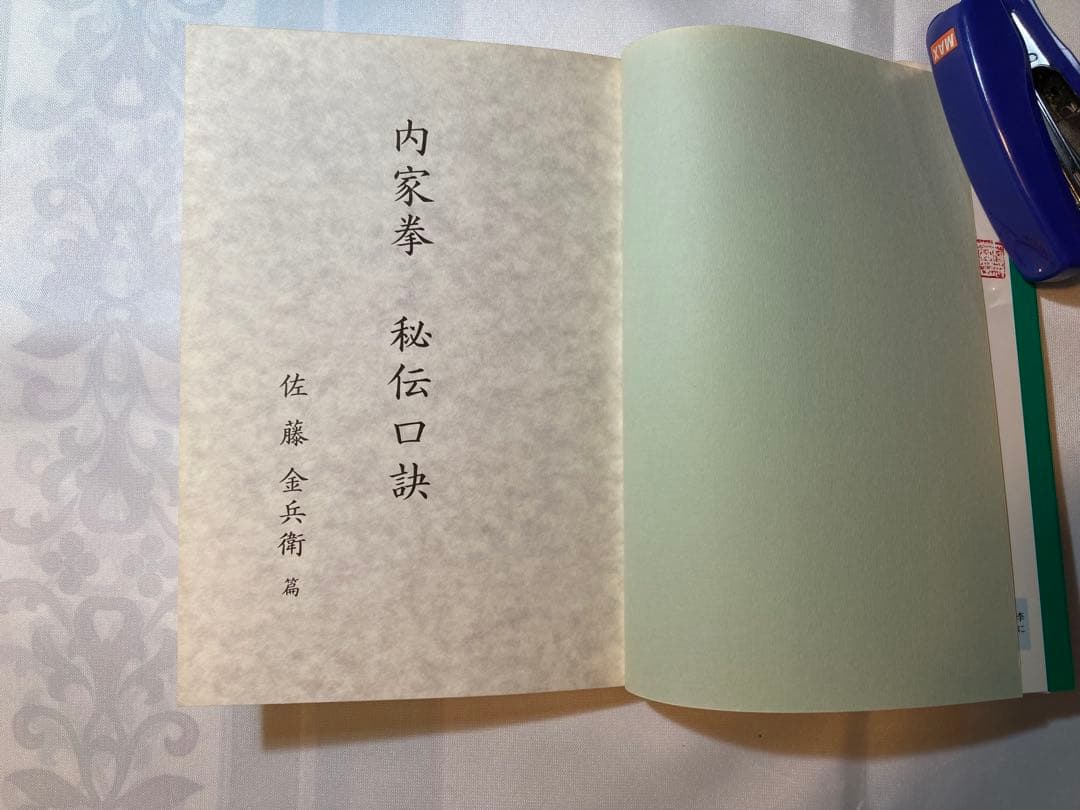 内家拳 秘伝口訣
佐藤金兵衛 篇
MAX